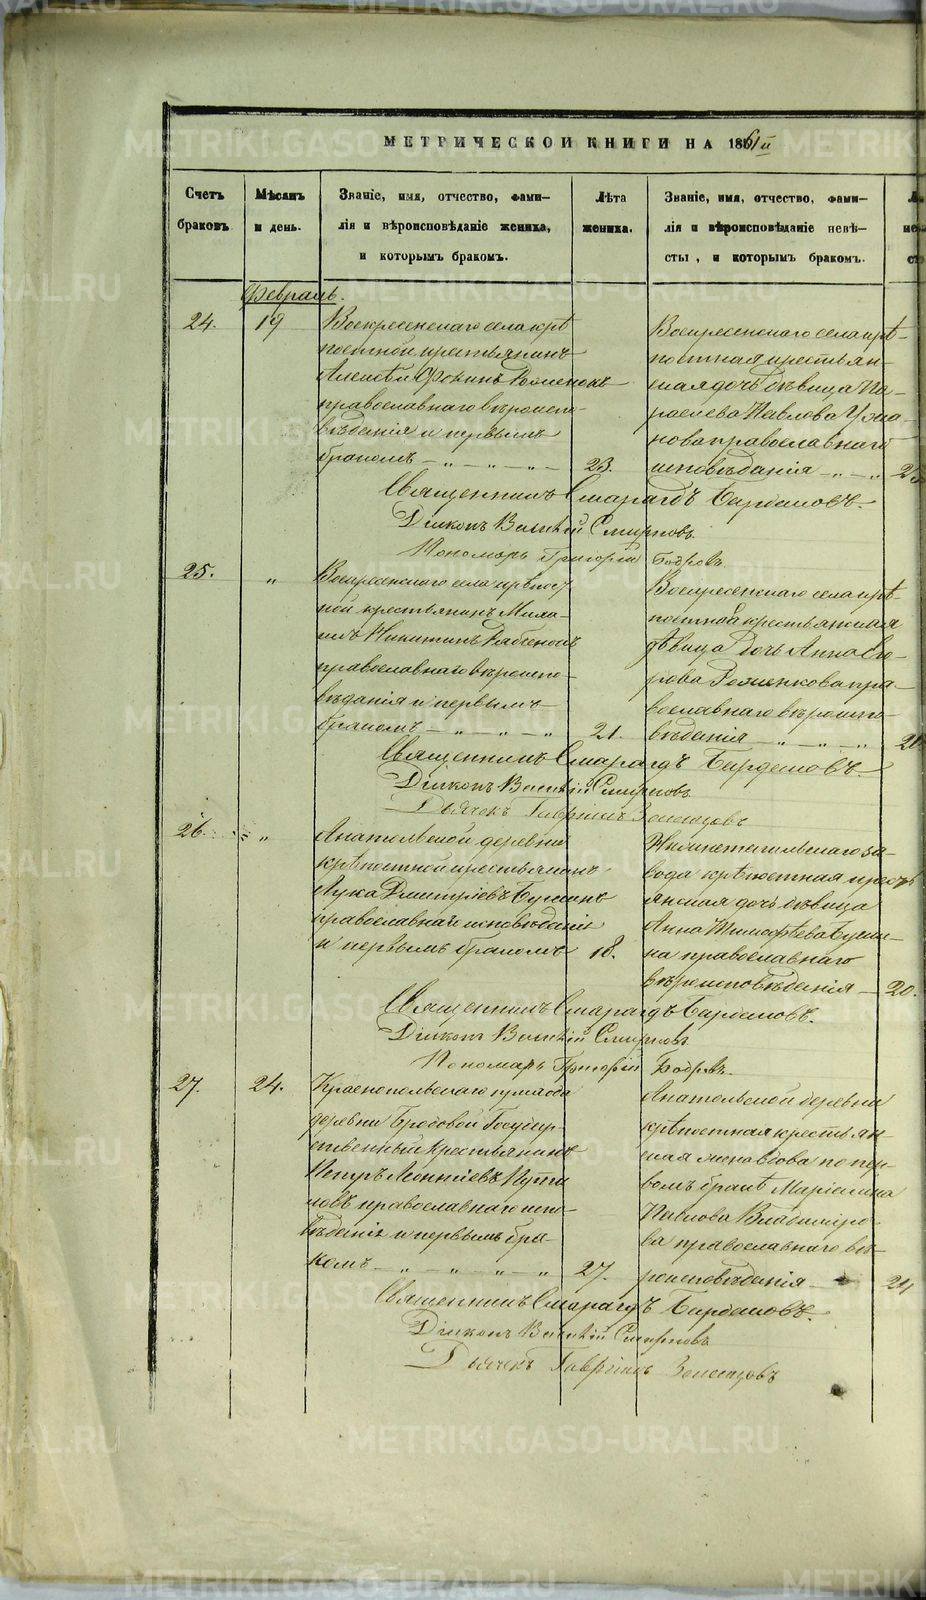 МЕТРИЧЕСКОЙ КНИГИ НА 1861й
Счетъ браковъ.
Мѣсяцъ и день.
Званіе, имя, отчество, фами-
лія и вѣроисповѣданіе жениха,
и которымъ бракомъ.
Лѣта жениха.
Званіе, имя, отчество, фами-
лія и вѣроисповѣданіе невѣ-
сты, и которымъ бракомъ.
Февраль.
24.
19
Воскресенскаго села крѣ
постной крестьянинъ
Алексѣй Фокинъ
православнаго вѣроиспо-
вѣденія и первымъ
бракомъ — „ — „ — „ —
23.
Воскресенскаго села крѣ-
постная крестьян-
ская дочь дѣвица Па-
раскева Павлова
нова православнаго
исповѣданія — „ — „
Священникъ Смарагдъ Бардаковъ.
Діаконъ Василій Смирновъ
Пономарь Григорій Бобровъ
25.
„
Воскресенскаго села крѣпост
ной крестьянинъ Миха-
илъ Никитинъ
православнаго вѣроиспо-
вѣданія и первымъ
бракомъ — „ — „ — „
21.
Воскресенскаго села крѣ-
постной крестьянская
дѣвица дочь Анна
рова Роженкова пра-
вославнаго вѣроиспо-
вѣденія — „ — „ — „
Священникъ Смарагдъ Бардаковъ
Діаконъ Василій Смирновъ
Дьячекъ Гавріилъ
26.
„
Анатольской деревни
крѣпостной крестьянинъ
Лука Дмитріевъ
православнаго исповѣданія
и первымъ бракомъ
18.
Нижнетагильскаго за-
вода крѣпостная кресть
янская дочь дѣвица
Анна Тимофѣева
на православнаго
вѣроисповѣденія —
20.
Священникъ Смарагдъ Бардаковъ.
Діаконъ Василій Смирновъ
Пономарь Григорій Бобровъ.
27.
24.
Краснопольскаго прихода
деревни Бродовой Государ-
ственный крестьянинъ
Петръ Леонтіевъ Пути
ловъ православнаго испо-
вѣденія и первымъ бра-
комъ — „ — „ — „ — „
27.
Анатольской деревни
крѣпостная крестьян-
ская жена вдова по пер-
вомъ бракѣ Маріамна
Павлова Владиміро-
ва православнаго вѣ-
роисповѣденія —
24
Священникъ Смарагдъ Бардаковъ.
Діаконъ Василій Смирновъ
Дьячекъ Гавріилъ
METRIKI.GASO-URAL.RU